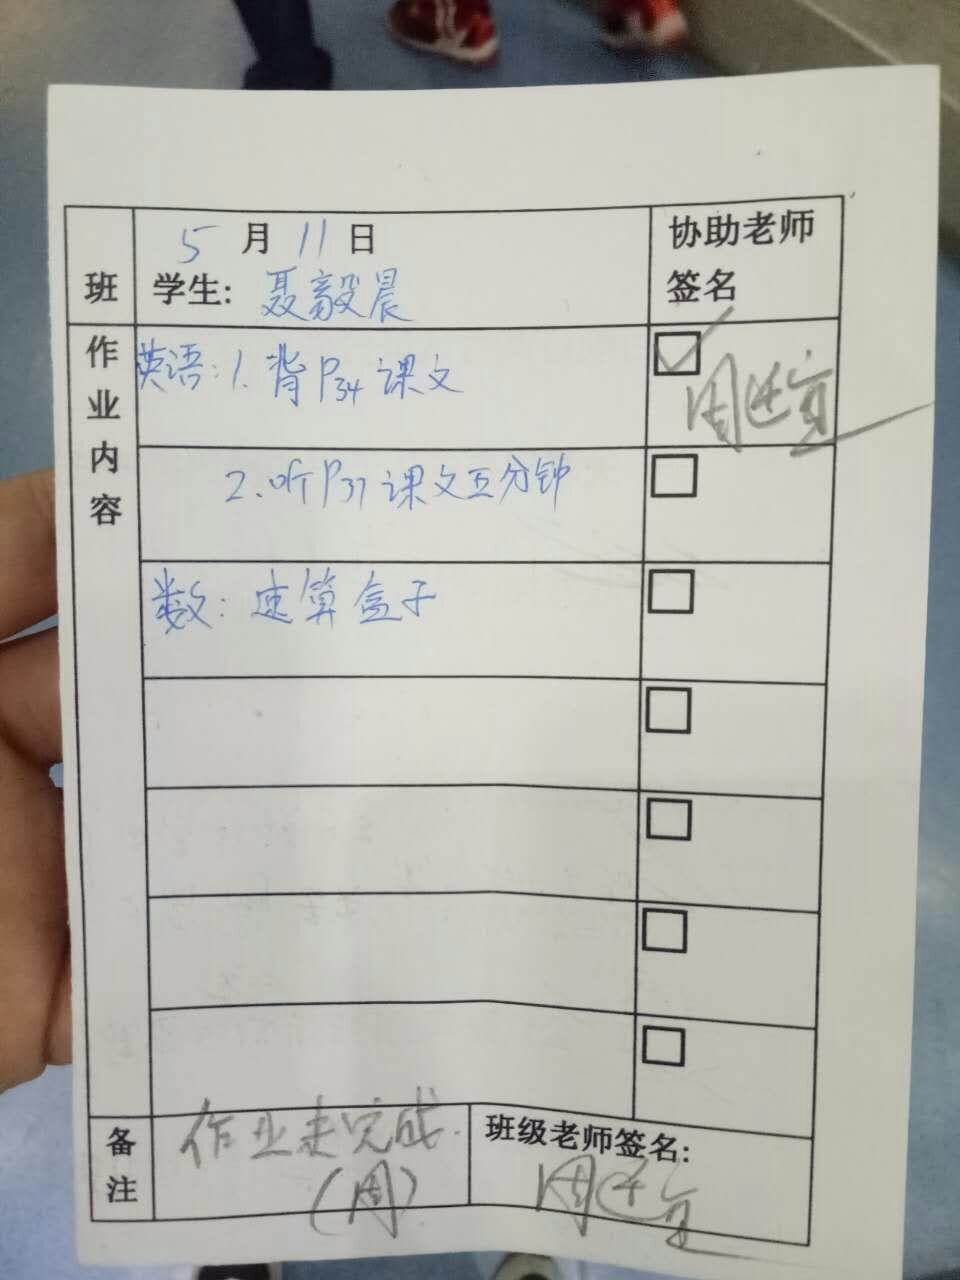 5月11日
协助老师
签名
班
学生: 聂毅晨
作业内容
英语: 1. 背P34课文
2. 听P37课文五分钟
数: 速算盒子
备注
作业未完成.
(周)
班级老师签名:
周